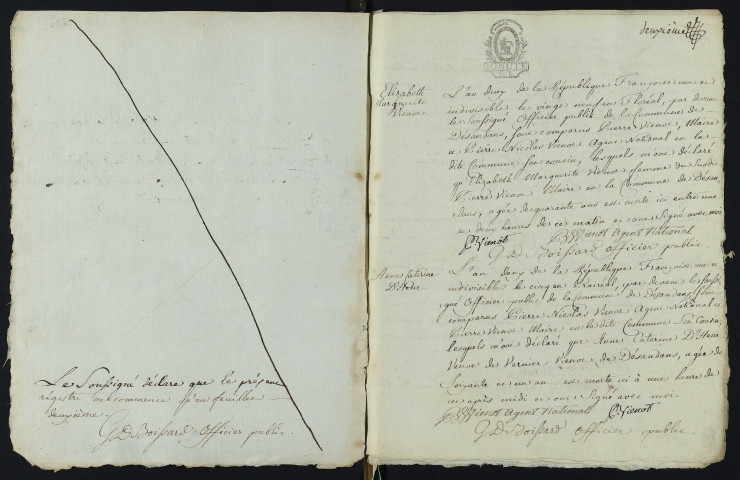 Le Soussigné déclare que le présent
registre ne commence qu'au feuillet
deuxième.
G D Boissard Officier public.
deuxième
MINUTE
Elizabeth
Marguerite
Vienot
L'an deux de la République Françoise une et
indivisible le vingt neuf Floréal, par devant
le Soussigné Officier public de la Commune de
Désandans, sont comparus Pierre Vienot, Maire
et Pierre Nicolas Vienot Agent National en la
dite Commune son cousin, lesquels m'ont déclaré
qu'Elizabeth Marguerite Vienot femme du susdit
Pierre Vienot Maire en la Commune de Désan
dans, agée de quarante ans est morte ici entre une
et deux heures de ce matin et ont Signé avec moi
PVienot PNVienot Agent National
G D Boissard Officier public.
Anne Caterine
D'Hotel
L'an deux de la République Françoise une et
indivisible le cinq Prairéal, par devant le Soussi
gné Officier public de la Commune de Désandans, sont
comparus Pierre Nicolas Vienot Agent National et
Pierre Vienot Maire en la dite Commune son Cousin,
lesquels m'ont déclaré que Anne Caterine
Veuve de Vernier Vienot de Désandans, agée de
Soixante et un an est morte ici à une heure de
après midi et ont Signé avec moi.
PNVienot Agent National PVienot
G D Boissard Officier public.